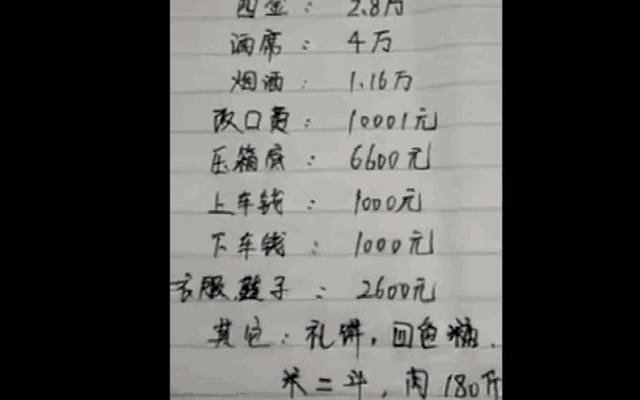 四金：2.8万
酒席：4万
烟酒：1.16万
改口费：10001元
压箱底：6600元
上车钱：1000元
下车钱：1000元
衣服鞋子：2600元
其它：礼饼，回色糖.
米二斗，肉180斤